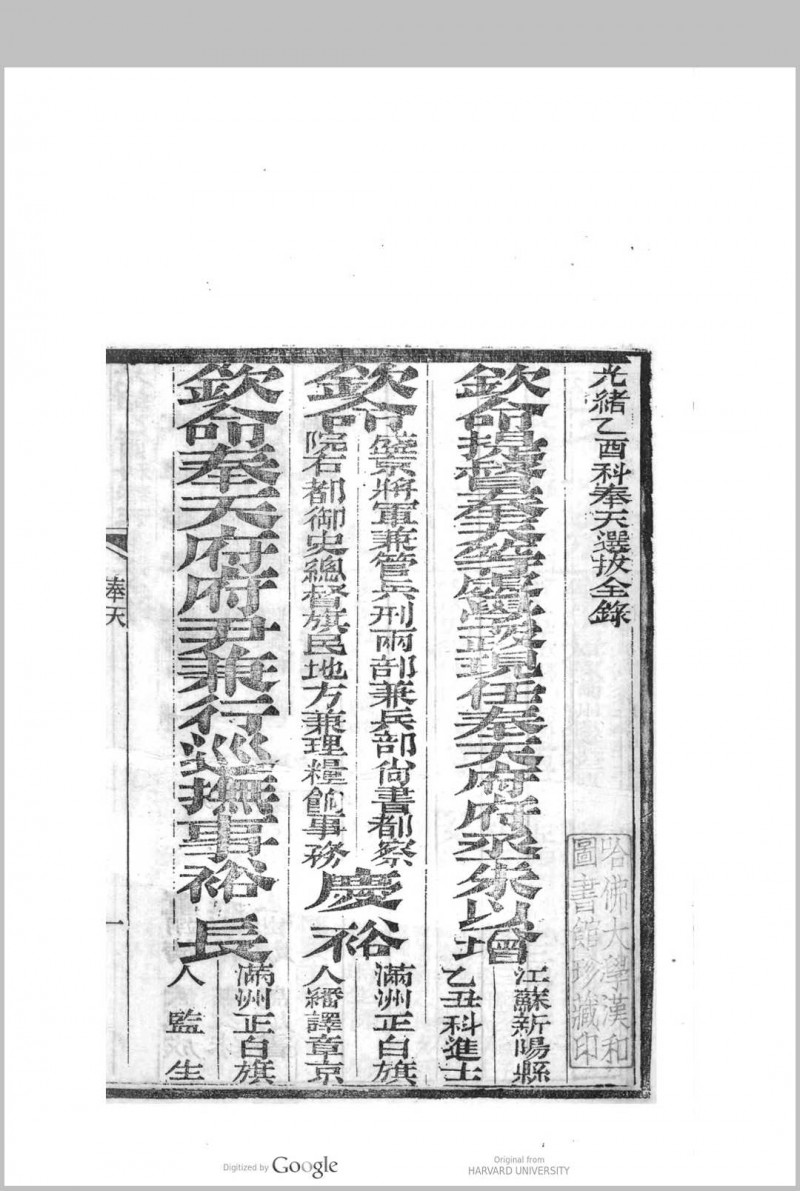 光緒乙酉科奉天選拔全錄
欽命提督奉天等處學政現任奉天府府丞朱以增
江蘇新陽縣
乙丑科進士
欽命
盛京將軍兼管兵刑兩部兼兵部尚書都察
院右都御史總督旗民地方兼理糧餉事務
慶裕
滿洲正白旗
人繙譯章京
欽命奉天府府尹兼行巡撫事裕長
滿洲正白旗
人監生
奉天
一
哈佛大學漢和
圖書館珍藏印
Digitized by Google
Original from
HARVARD UNIVERSITY